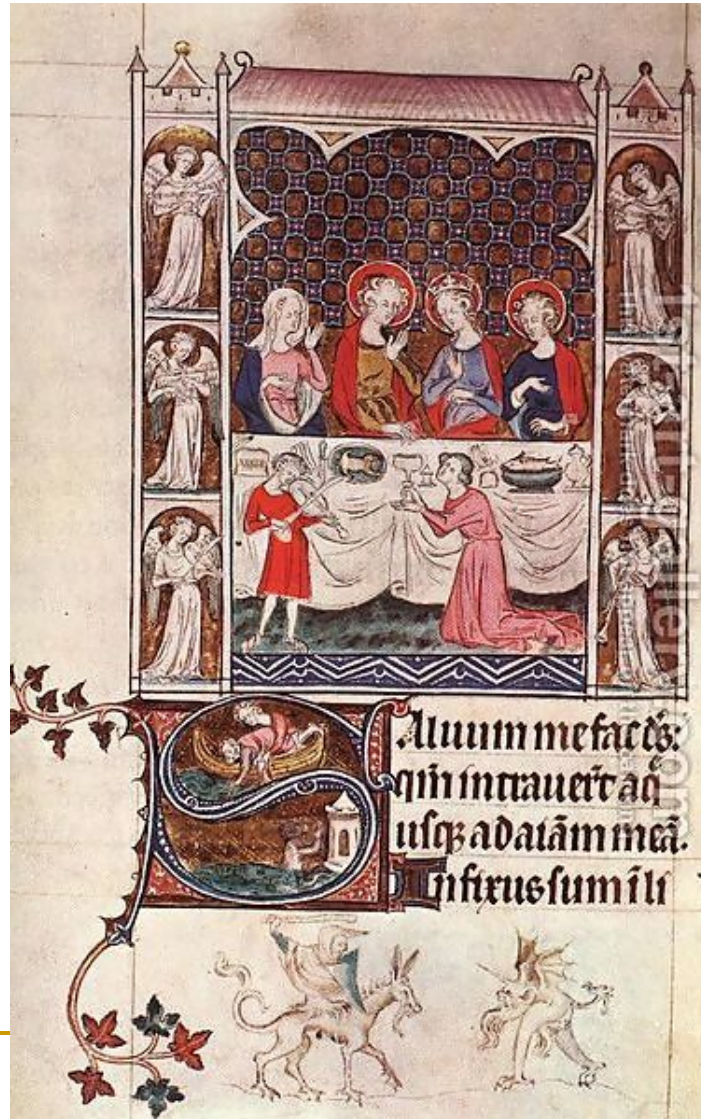 Saluum me fac ds̄:
qm̄ intrauert̄ aq̄
usqꝫ ad aīam meā.
Infixus sum ī li